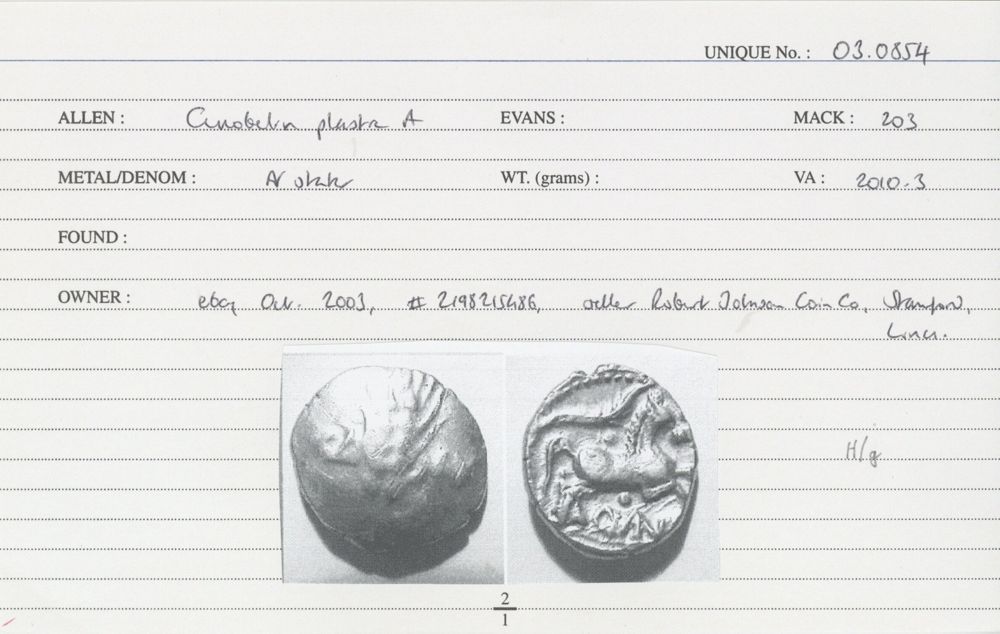 UNIQUE No. : 03.0854
ALLEN : Cunobelin plastr A EVANS : MACK : 203
METAL/DENOM : AV stater WT. (grams) : VA : 2010-3
FOUND :
OWNER : ebay Oct. 2003, # 2198215486, seller Robert Johnson Coin Co, Stamford,
Lincs.
H/g
2
1